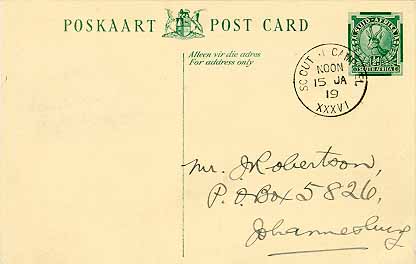 POSKAART POST CARD
Alleen vir die adres
For address only
SCOUT
NOON
15 JA
19
XXXVI
Mr. J. Robertson,
P.O. Box 5826,
Johannesburg